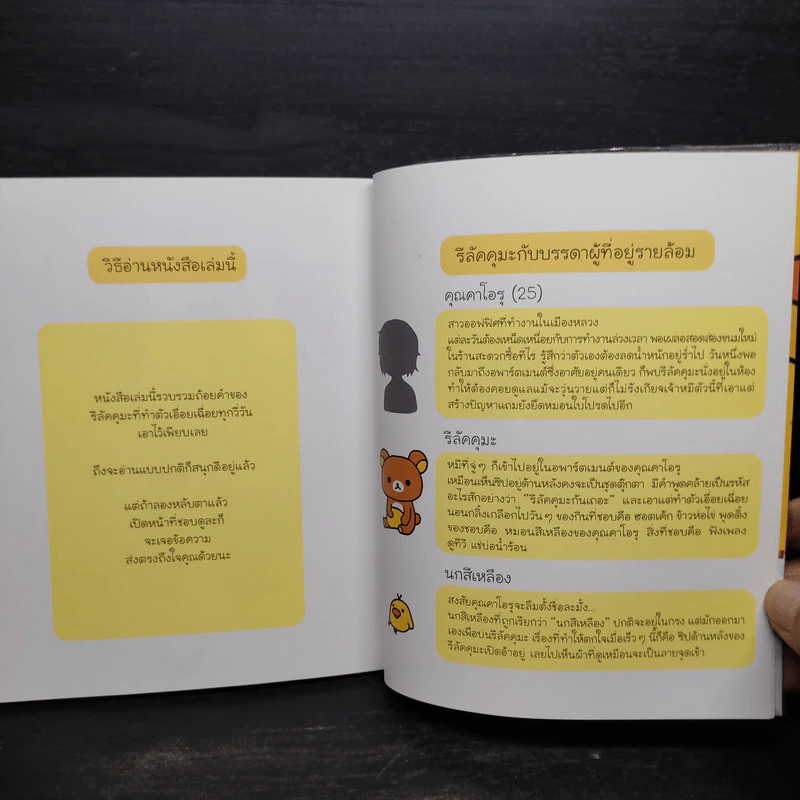 วิธีอ่านหนังสือเล่มนี้
หนังสือเล่มนี้รวบรวมถ้อยคำของ
ริลัคคุมะที่ทำตัวเอื่อยเฉื่อยทุกวี่วัน
เอาไว้เพียบเลย
ถึงจะอ่านแบบปกติก็สนุกดีอยู่แล้ว
แต่ถ้าลองหลับตาแล้ว
เปิดหน้าที่ชอบดูละก็
จะเจอข้อความ
ส่งตรงถึงใจคุณด้วยนะ
รีลัคคุมะกับบรรดาผู้ที่อยู่รายล้อม
คุณคาโอรุ (25)
สาวออฟฟิศที่ทำงานในเมืองหลวง
แต่ละวันต้องเหน็ดเหนื่อยกับการทำงานล่วงเวลา พอเผลอสอดส่องขนมใหม่
ในร้านสะดวกซื้อทีไร รู้สึกว่าตัวเองต้องลดน้ำหนักอยู่ร่ำไป วันหนึ่งพอ
กลับมาถึงอพาร์ตเมนต์ซึ่งอาศัยอยู่คนเดียว ก็พบรีลัคคุมะนั่งอยู่ในห้อง
ทำให้ต้องคอยดูแลแม้จะวุ่นวายแต่ก็ไม่รังเกียจเจ้าหมีตัวนี้ที่เอาแต่
สร้างปัญหาแถมยังยึดหมอนใบโปรดไปอีก
รีลัคคุมะ
หมีที่จู่ๆ ก็เข้าไปอยู่ในอพาร์ตเมนต์ของคุณคาโอรุ
เหมือนเห็นซิปอยู่ด้านหลังคงจะเป็นชุดตุ๊กตา มีคำพูดคล้ายเป็นรหัส
อะไรสักอย่างว่า “รีลัคคุมะกันเถอะ” และเอาแต่ทำตัวเอื่อยเฉื่อย
นอนกลิ้งเกลือกไปวันๆ ของกินที่ชอบคือ ฮอตเค้ก ข้าวห่อไข่ พุดดิ้ง
ของชอบคือ หมอนสีเหลืองของคุณคาโอรุ สิ่งที่ชอบคือ ฟังเพลง
ดูทีวี แช่บ่อน้ำร้อน
นกสีเหลือง
สงสัยคุณคาโอรุจะลืมตั้งชื่อละมั้ง...
นกสีเหลืองที่ถูกเรียกว่า “นกสีเหลือง” ปกติจะอยู่ในกรง แต่มักออกมา
เองเพื่อบ่นรีลัคคุมะ เรื่องที่ทำให้ตกใจเมื่อเร็วๆ นี้ก็คือ ซิปด้านหลังของ
รีลัคคุมะเปิดอ้าอยู่ เลยไปเห็นผ้าที่ดูเหมือนจะเป็นลายจุดเข้า